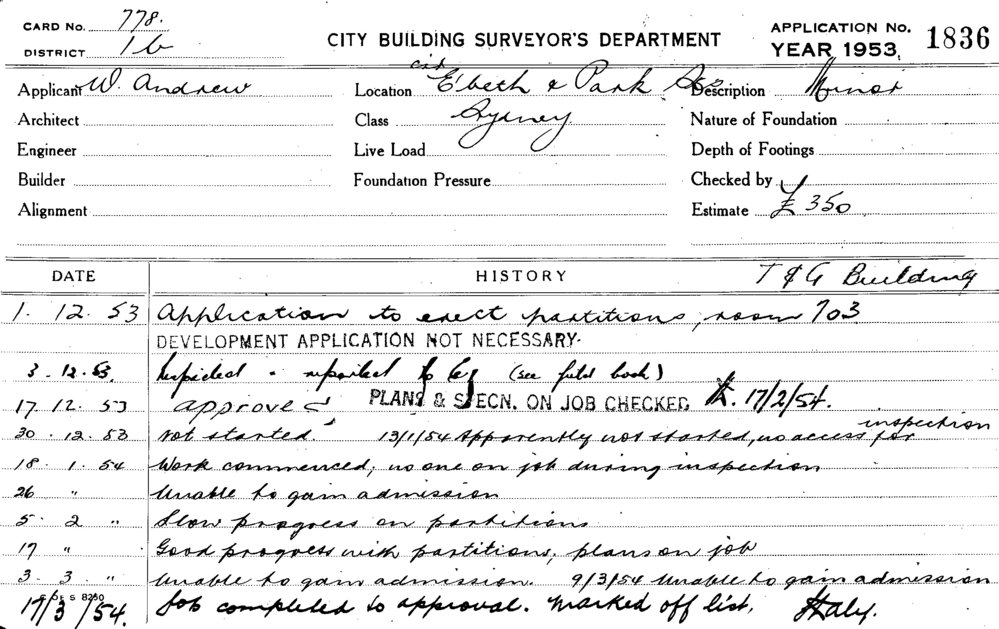 CARD No. 778.
DISTRICT 1b
CITY BUILDING SURVEYOR'S DEPARTMENT
APPLICATION No. 1836
YEAR 1953
Applicant W. Andrew
Location cnr E'beth & Park Sts
Description Minor
Architect
Class Sydney
Nature of Foundation
Engineer
Live Load
Depth of Footings
Builder
Foundation Pressure
Checked by
Alignment
Estimate £350
DATE HISTORY T & G Building
1. 12. 53 Application to erect partitions, room 703
DEVELOPMENT APPLICATION NOT NECESSARY.
3. 12. 53. Inspected & reported to (see field book)
17. 12. 53 approved PLANS & SPECN. ON JOB CHECKED 17/2/54.
30. 12. 53 Not started. 13/1/54 Apparently not started, no access for inspection
18. 1. 54 Work commenced, no one on job during inspection
26 " Unable to gain admission
5. 2 " Slow progress on partitions
17 " Good progress with partitions, plans on job
3. 3. " Unable to gain admission. 9/3/54 Unable to gain admission
S 8250
17/3/54. Job completed to approval. Marked off list. Staly.